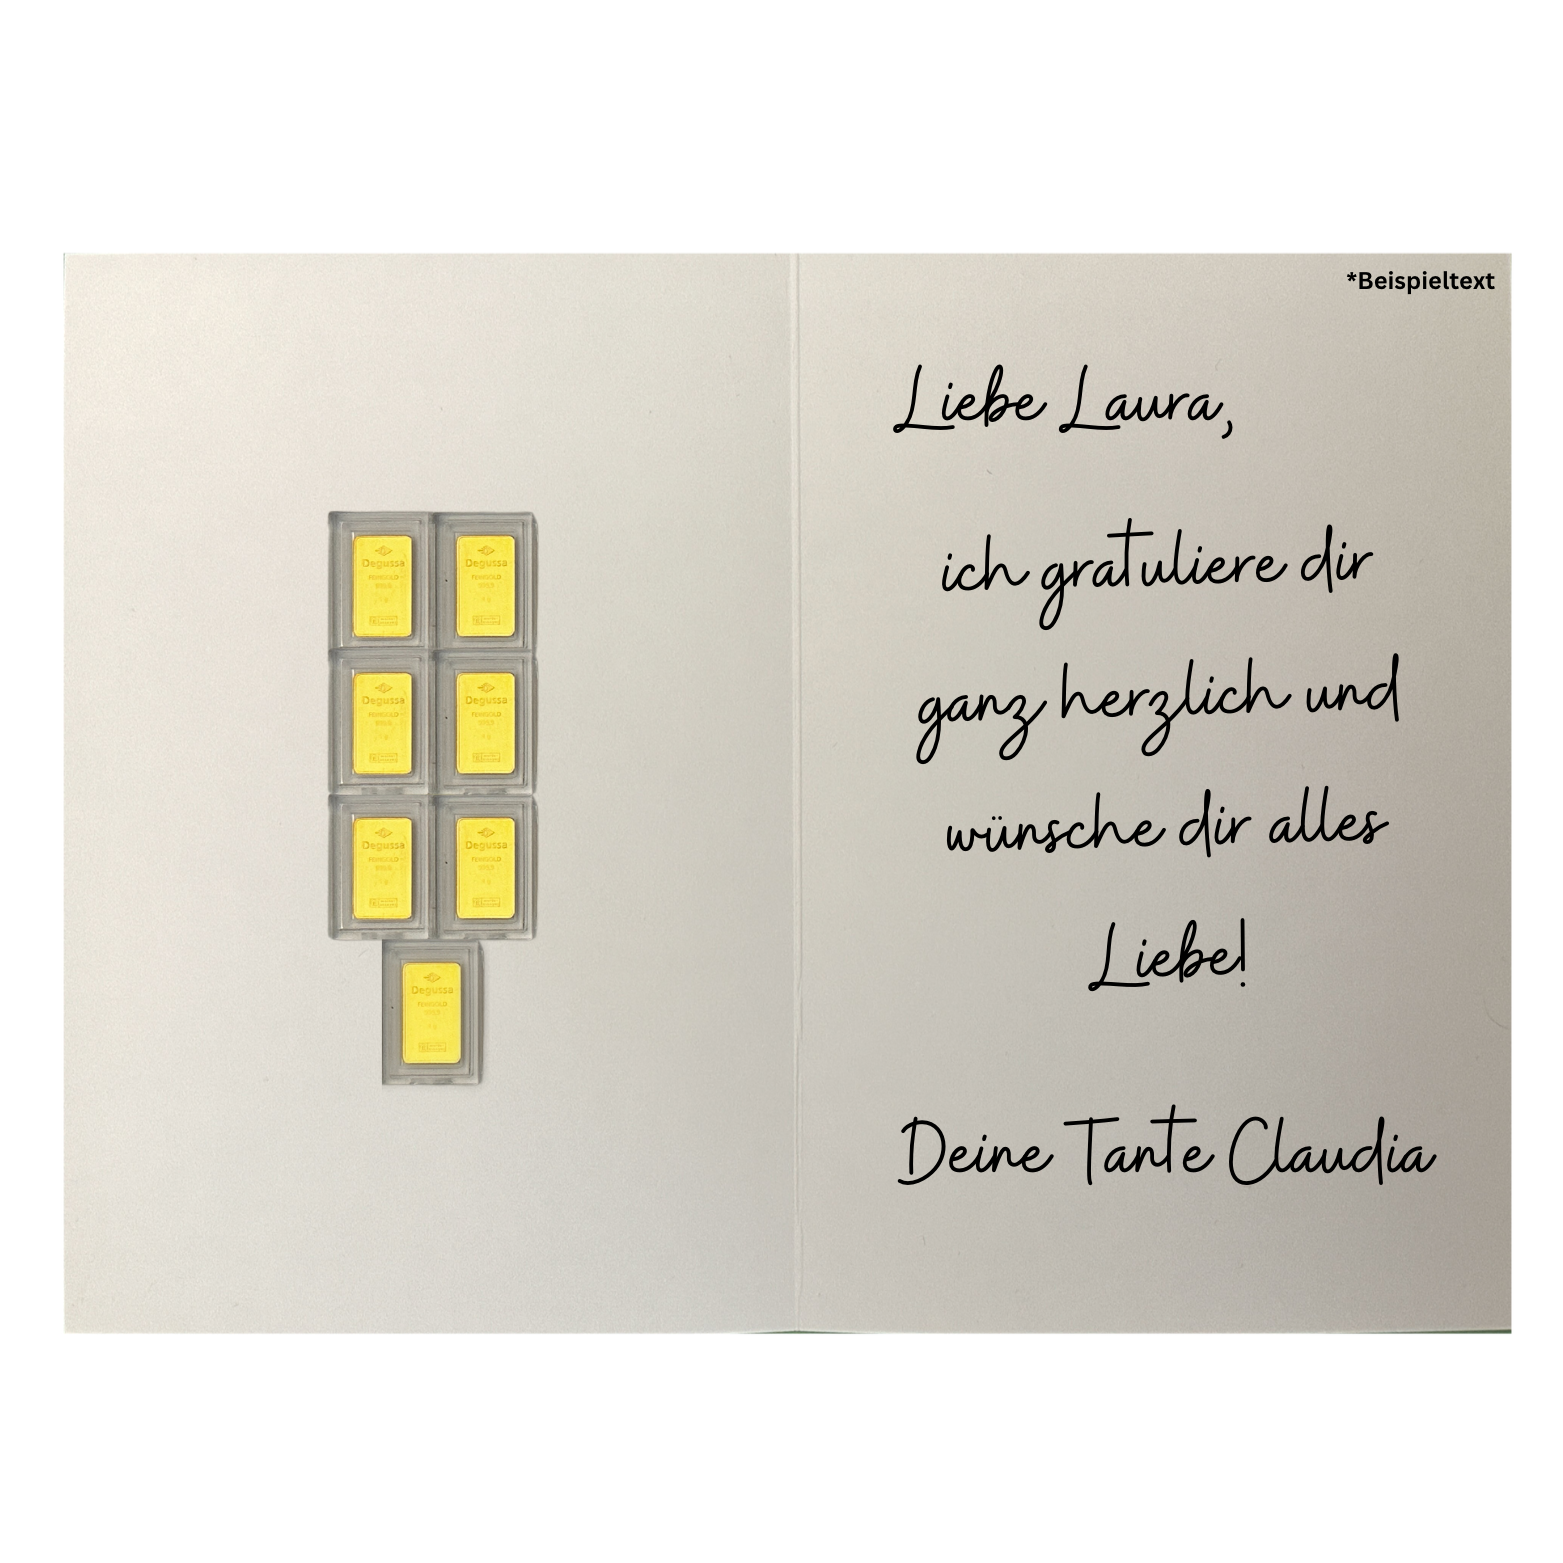 *Beispieltext
Liebe Laura,
ich gratuliere dir
ganz herzlich und
wünsche dir alles
Liebe!
Deine Tante Claudia
Degussa
FEINGOLD
Degussa
FEINGOLD
Degussa
FEINGOLD
Degussa
FEINGOLD
Degussa
FEINGOLD
Degussa
FEINGOLD
Degussa
FEINGOLD